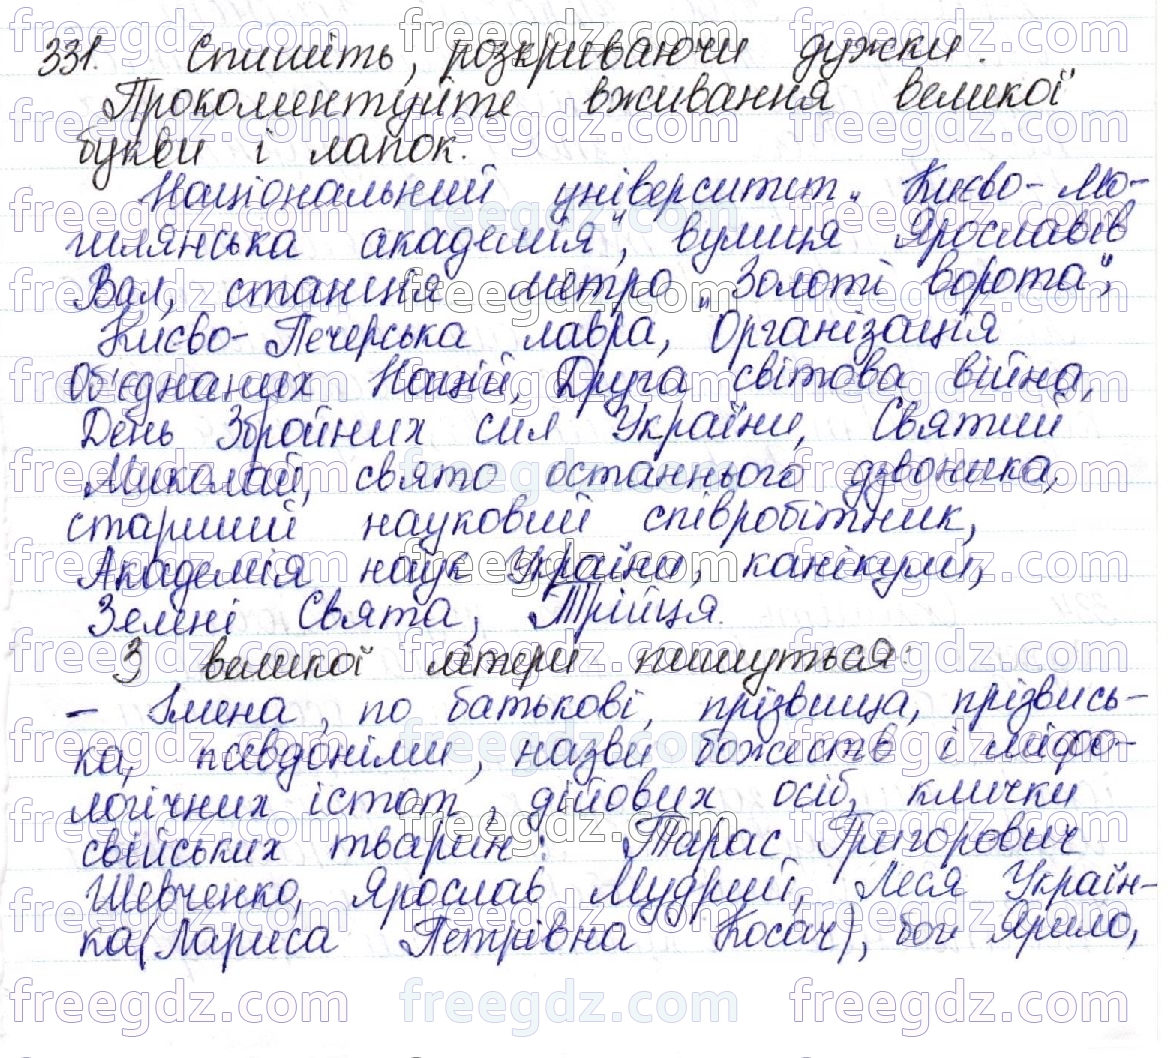 331. Спишіть, розкриваючи дужки.
Прокоментуйте вживання великої
букви і лапок.
Національний університет „Києво-Мо-
гилянська академія", вулиця Ярославів
Вал, станція метро „Золоті ворота",
Києво-Печерська лавра, Організація
Об'єднаних Націй, Друга світова війна,
День Збройних сил України, Святий
Миколай, свято останнього дзвоника,
старший науковий співробітник,
Академія наук України, канікули,
Зелені Свята, Трійця.
З великої літери пишуться:
- Імена, по батькові, прізвища, прізвись-
ка, псевдоніми, назви божеств і міфо-
логічних істот, дійових осіб, клички
свійських тварин: Тарас Григорович
Шевченко, Ярослав Мудрий, Леся Україн-
ка (Лариса Петрівна Косач), бог Ярило,
freegdz.com freegdz.com freegdz.com